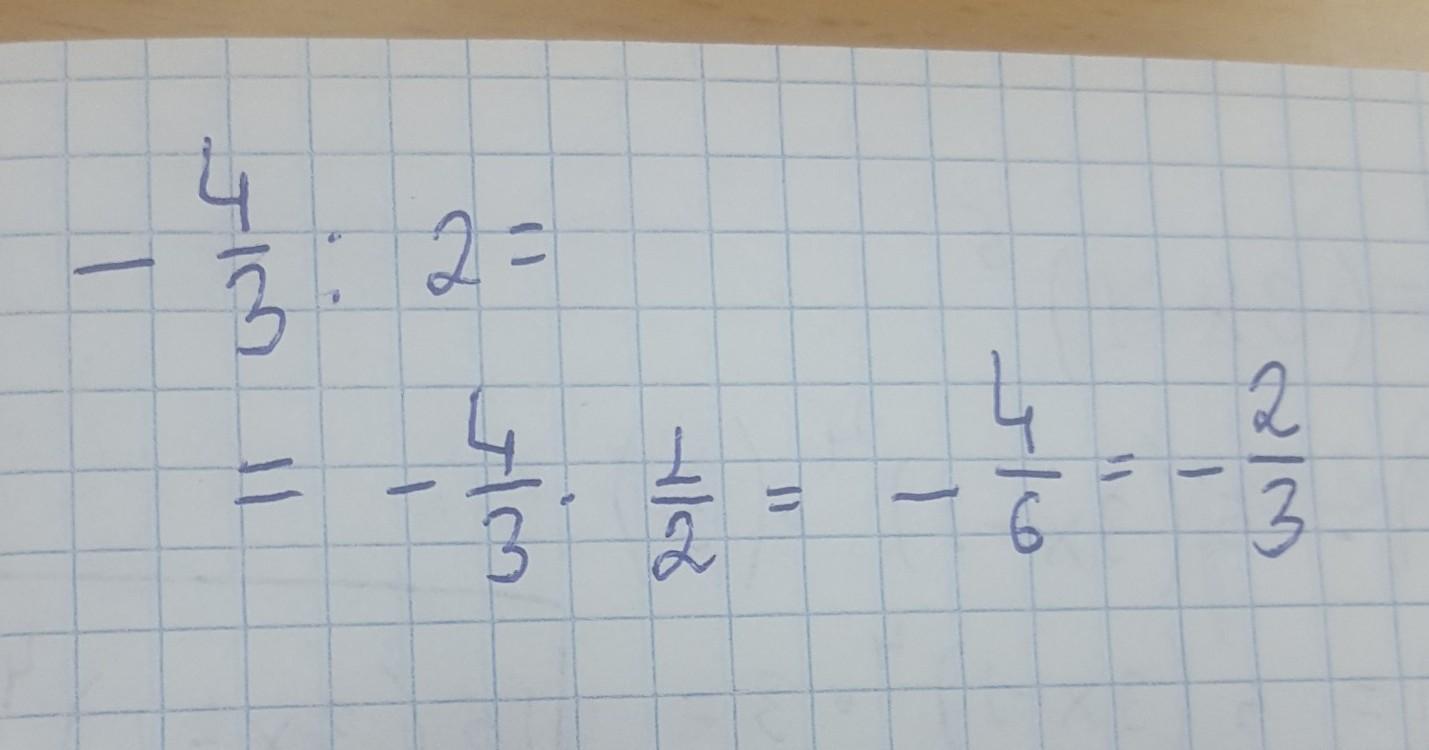 - 4/3 : 2 =
= - 4/3 · 1/2 = - 4/6 = - 2/3